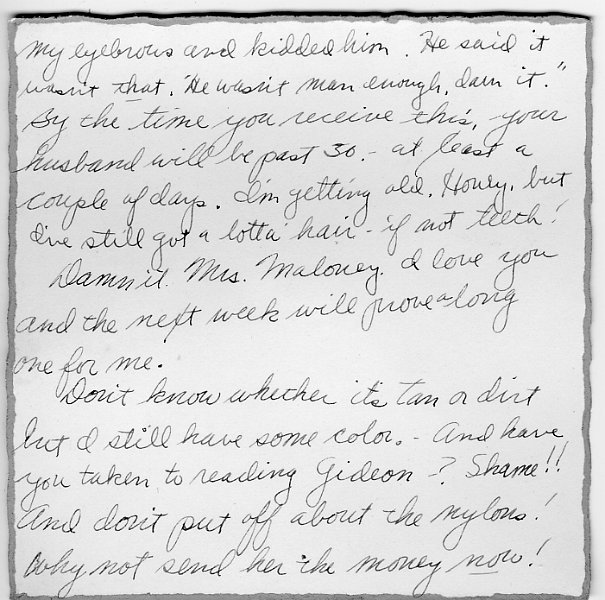 my eyebrows and kidded him. He said it
wasn't that. "He wasn't man enough, darn it."
By the time you receive this, your
husband will be past 30. - at least a
couple of days. I'm getting old, Honey, but
I've still got a lotta' hair - if not teeth!
Damn it. Mrs. Maloney. I love you
and the next week will prove a long
one for me.
Don't know whether it's tan or dirt
but I still have some color. - And have
you taken to reading Gideon -? Shame!!
And don't put off about the nylons!
Why not send her the money now!